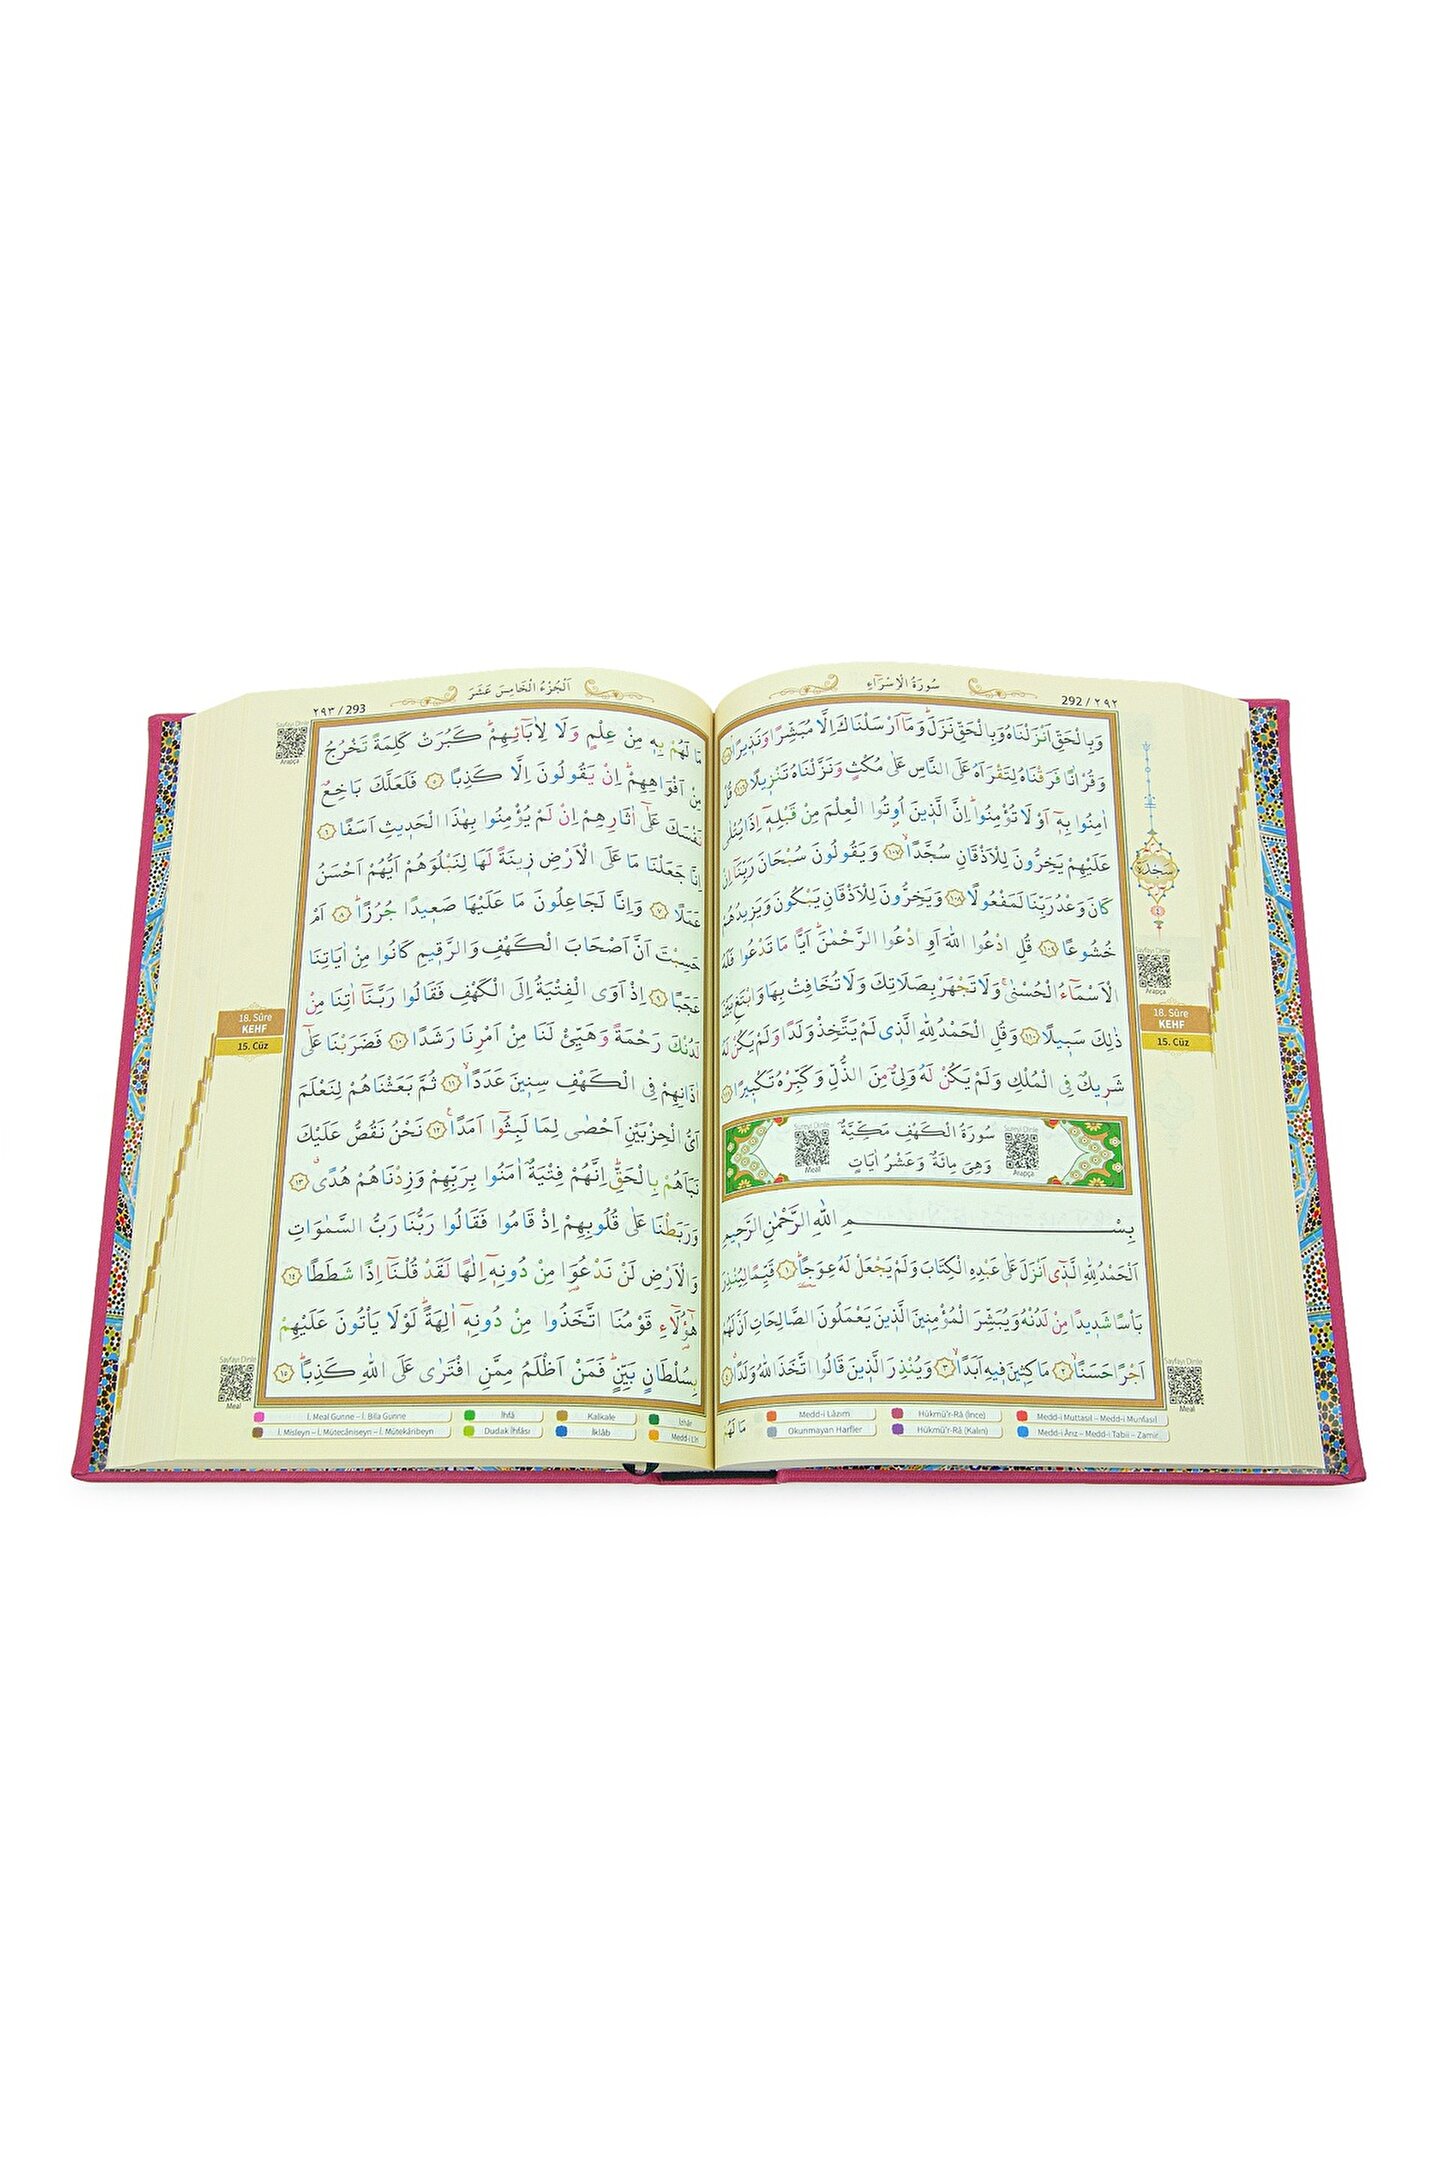 سُورَةُ الْاِسْرَٓاءِ
292 / ٢٩٢
وَبِالْحَقِّ اَنْزَلْنَاهُ وَبِالْحَقِّ نَزَلَۜ وَمَٓا اَرْسَلْنَاكَ اِلَّا مُبَشِّرًا وَنَذ۪يرًاۢ ﴿١٠٥﴾
وَقُرْاٰنًا فَرَقْنَاهُ لِتَقْرَاَهُ عَلَى النَّاسِ عَلٰى مُكْثٍ وَنَزَّلْنَاهُ تَنْز۪يلًا ﴿١٠٦﴾ قُلْ
اٰمِنُوا بِه۪ٓ اَوْ لَا تُؤْمِنُواۜ اِنَّ الَّذ۪ينَ اُو۫تُوا الْعِلْمَ مِنْ قَبْلِه۪ٓ اِذَا يُتْلٰى
عَلَيْهِمْ يَخِرُّونَ لِلْاَذْقَانِ سُجَّدًاۙ ﴿١٠٧﴾ وَيَقُولُونَ سُبْحَانَ رَبِّنَٓا اِنْ
كَانَ وَعْدُ رَبِّنَا لَمَفْعُولًا ﴿١٠٨﴾ وَيَخِرُّونَ لِلْاَذْقَانِ يَبْكُونَ وَيَز۪يدُهُمْ
خُشُوعًا ﴿١٠٩﴾ قُلِ ادْعُوا اللّٰهَ اَوِ ادْعُوا الرَّحْمٰنَۜ اَيًّا مَا تَدْعُوا فَلَهُ
الْاَسْمَٓاءُ الْحُسْنٰىۚ وَلَا تَجْهَرْ بِصَلَاتِكَ وَلَا تُخَافِتْ بِهَا وَابْتَغِ بَيْنَ
ذٰلِكَ سَب۪يلًا ﴿١١٠﴾ وَقُلِ الْحَمْدُ لِلّٰهِ الَّذ۪ي لَمْ يَتَّخِذْ وَلَدًا وَلَمْ يَكُنْ لَهُ
شَر۪يكٌ فِي الْمُلْكِ وَلَمْ يَكُنْ لَهُ وَلِيٌّ مِنَ الذُّلِّ وَكَبِّرْهُ تَكْب۪يرًا ﴿١١١﴾
سُورَةُ الْكَهْفِ مَكِّيَّةٌ
وَهِيَ مِائَةٌ وَعَشْرُ اٰيَاتٍ
Sureyi Dinle
Meal
Sureyi Dinle
Arapça
بِسْمِ اللّٰهِ الرَّحْمٰنِ الرَّح۪يمِ
اَلْحَمْدُ لِلّٰهِ الَّذ۪ٓي اَنْزَلَ عَلٰى عَبْدِهِ الْكِتَابَ وَلَمْ يَجْعَلْ لَهُ عِوَجًاۜ ﴿١﴾ قَيِّمًا لِيُنْذِرَ
بَأْسًا شَد۪يدًا مِنْ لَدُنْهُ وَيُبَشِّرَ الْمُؤْمِن۪ينَ الَّذ۪ينَ يَعْمَلُونَ الصَّالِحَاتِ اَنَّ لَهُمْ
اَجْرًا حَسَنًاۙ ﴿٢﴾ مَاكِث۪ينَ ف۪يهِ اَبَدًاۙ ﴿٣﴾ وَيُنْذِرَ الَّذ۪ينَ قَالُوا اتَّخَذَ اللّٰهُ وَلَدًا ﴿٤﴾
مَا لَهُمْ
Medd-i Lâzım
Hükmü'r-Râ (İnce)
Medd-i Muttasıl – Medd-i Munfasıl
Okunmayan Harfler
Hükmü'r-Râ (Kalın)
Medd-i Ârız – Medd-i Tabii – Zamir
سَجْدَة
٤
Sayfayı Dinle
Arapça
18. Sûre
KEHF
15. Cüz
Sayfayı Dinle
Meal
اَلْجُزْءُ الْخَامِسَ عَشَرَ
٢٩٣ / 293
مَا لَهُمْ بِه۪ مِنْ عِلْمٍ وَلَا لِاٰبَٓائِهِمْۜ كَبُرَتْ كَلِمَةً تَخْرُجُ
مِنْ اَفْوَاهِهِمْۜ اِنْ يَقُولُونَ اِلَّا كَذِبًا ﴿٥﴾ فَلَعَلَّكَ بَاخِعٌ
نَفْسَكَ عَلٰٓى اٰثَارِهِمْ اِنْ لَمْ يُؤْمِنُوا بِهٰذَا الْحَد۪يثِ اَسَفًا ﴿٦﴾
اِنَّا جَعَلْنَا مَا عَلَى الْاَرْضِ ز۪ينَةً لَهَا لِنَبْلُوَهُمْ اَيُّهُمْ اَحْسَنُ
عَمَلًا ﴿٧﴾ وَاِنَّا لَجَاعِلُونَ مَا عَلَيْهَا صَع۪يدًا جُرُزًاۜ ﴿٨﴾ اَمْ
حَسِبْتَ اَنَّ اَصْحَابَ الْكَهْفِ وَالرَّق۪يمِ كَانُوا مِنْ اٰيَاتِنَا
عَجَبًا ﴿٩﴾ اِذْ اَوَى الْفِتْيَةُ اِلَى الْكَهْفِ فَقَالُوا رَبَّنَٓا اٰتِنَا مِنْ
لَدُنْكَ رَحْمَةً وَهَيِّئْ لَنَا مِنْ اَمْرِنَا رَشَدًا ﴿١٠﴾ فَضَرَبْنَا عَلٰٓى
اٰذَانِهِمْ فِي الْكَهْفِ سِن۪ينَ عَدَدًاۙ ﴿١١﴾ ثُمَّ بَعَثْنَاهُمْ لِنَعْلَمَ
اَيُّ الْحِزْبَيْنِ اَحْصٰى لِمَا لَبِثُٓوا اَمَدًا۟ ﴿١٢﴾ نَحْنُ نَقُصُّ عَلَيْكَ
نَبَاَهُمْ بِالْحَقِّۜ اِنَّهُمْ فِتْيَةٌ اٰمَنُوا بِرَبِّهِمْ وَزِدْنَاهُمْ هُدًىۗ ﴿١٣﴾
وَرَبَطْنَا عَلٰى قُلُوبِهِمْ اِذْ قَامُوا فَقَالُوا رَبُّنَا رَبُّ السَّمٰوَاتِ
وَالْاَرْضِ لَنْ نَدْعُوَ۬ا مِنْ دُونِه۪ٓ اِلٰهًا لَقَدْ قُلْنَٓا اِذًا شَطَطًا ﴿١٤﴾
هٰٓؤُ۬لَٓاءِ قَوْمُنَا اتَّخَذُوا مِنْ دُونِه۪ٓ اٰلِهَةًۜ لَوْلَا يَأْتُونَ عَلَيْهِمْ
بِسُلْطَانٍ بَيِّنٍۜ فَمَنْ اَظْلَمُ مِمَّنِ افْتَرٰى عَلَى اللّٰهِ كَذِبًاۜ ﴿١٥﴾
İ. Meal Gunne – İ. Bila Gunne
İhfâ
Kalkale
İzhâr
İ. Misleyn – İ. Mütecâniseyn – İ. Mütekâribeyn
Dudak İhfâsı
İklâb
Medd-i Lîn
Sayfayı Dinle
Arapça
18. Sûre
KEHF
15. Cüz
Sayfayı Dinle
Meal